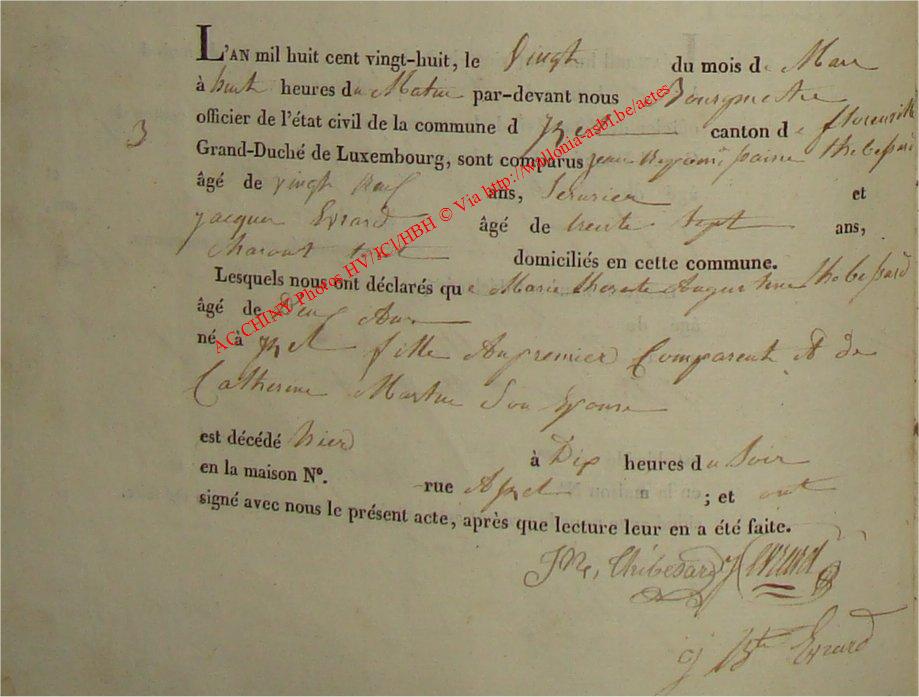 3
L'AN mil huit cent vingt-huit, le Vingt du mois de Mars
à huit heures du Matin par-devant nous Bourgmestre
officier de l'état civil de la commune d Izel canton de florenville
Grand-Duché de Luxembourg, sont comparus jean thebessard
âgé de vingt neuf ans, Serurier et
jacques Evrard âgé de trente sept ans,
domiciliés en cette commune.
Lesquels nous ont déclarés que Marie therese Augustine thebessard
âgé de Deux Ans
né à izel fille du premier Comparent et de
Catherine Martin Son Epouse
est décédé hier à Dix heures du Soir
en la maison N°. rue A izel ; et ont
signé avec nous le présent acte, après que lecture leur en a été faite.
Thibesard J Evrard
j Bte Evrard
AC CHINY Photos HV/JCl/HBH © Via http://wallonia-asbl.be/actes